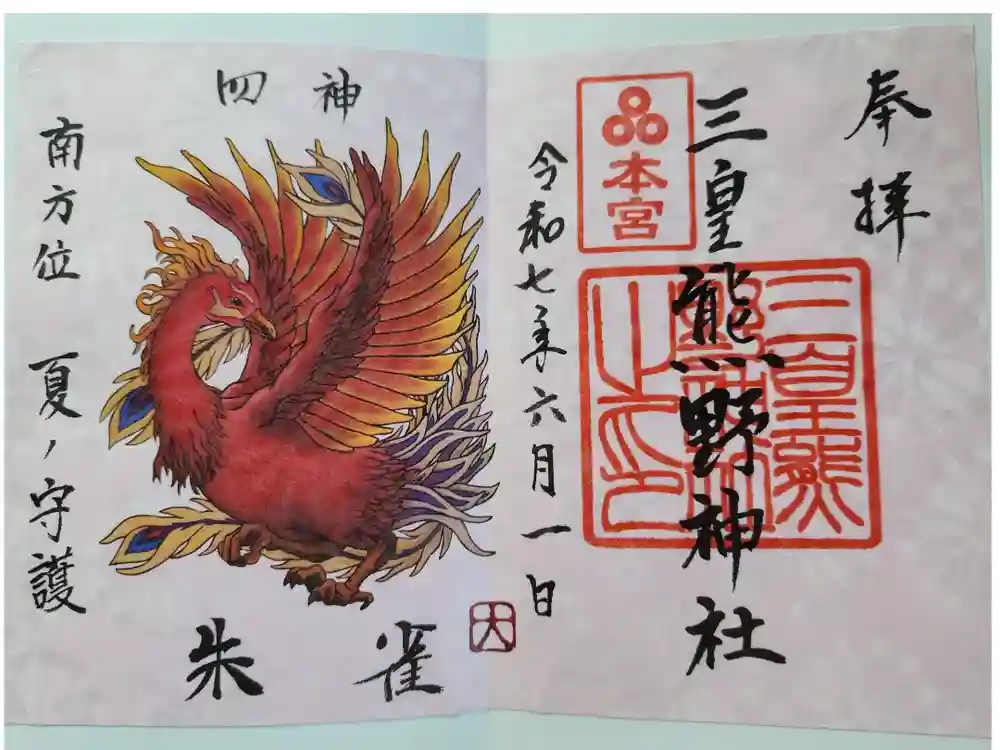 奉拝
三皇熊野神社
本宮
三皇熊野神社之印
令和七年六月一日
四神
南方位 夏ノ守護
朱雀